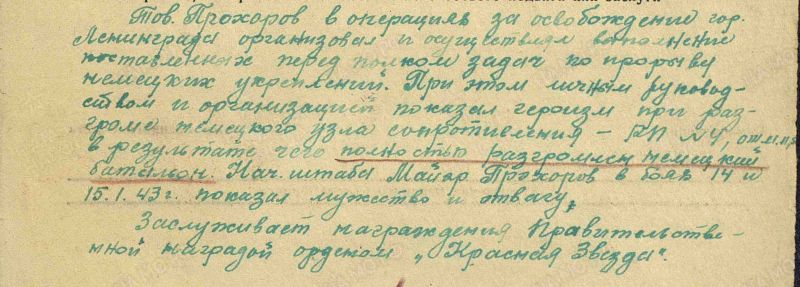 Тов. Прохоров в операциях за освобождение гор.
Ленинграда организовал и осуществлял выполнение
поставленных перед полком задач по прорыву
немецких укреплений. При этом личным руковод-
ством и организацией показал героизм при раз-
громе немецкого узла сопротивления –
в результате чего полностью разгромлен немецкий
батальон. Нач. штаба Майор Прохоров в боях 14 и
15.1.43г. показал мужество и отвагу,
Заслуживает награждения Правительстве-
нной наградой орденом „Красная Звезда".